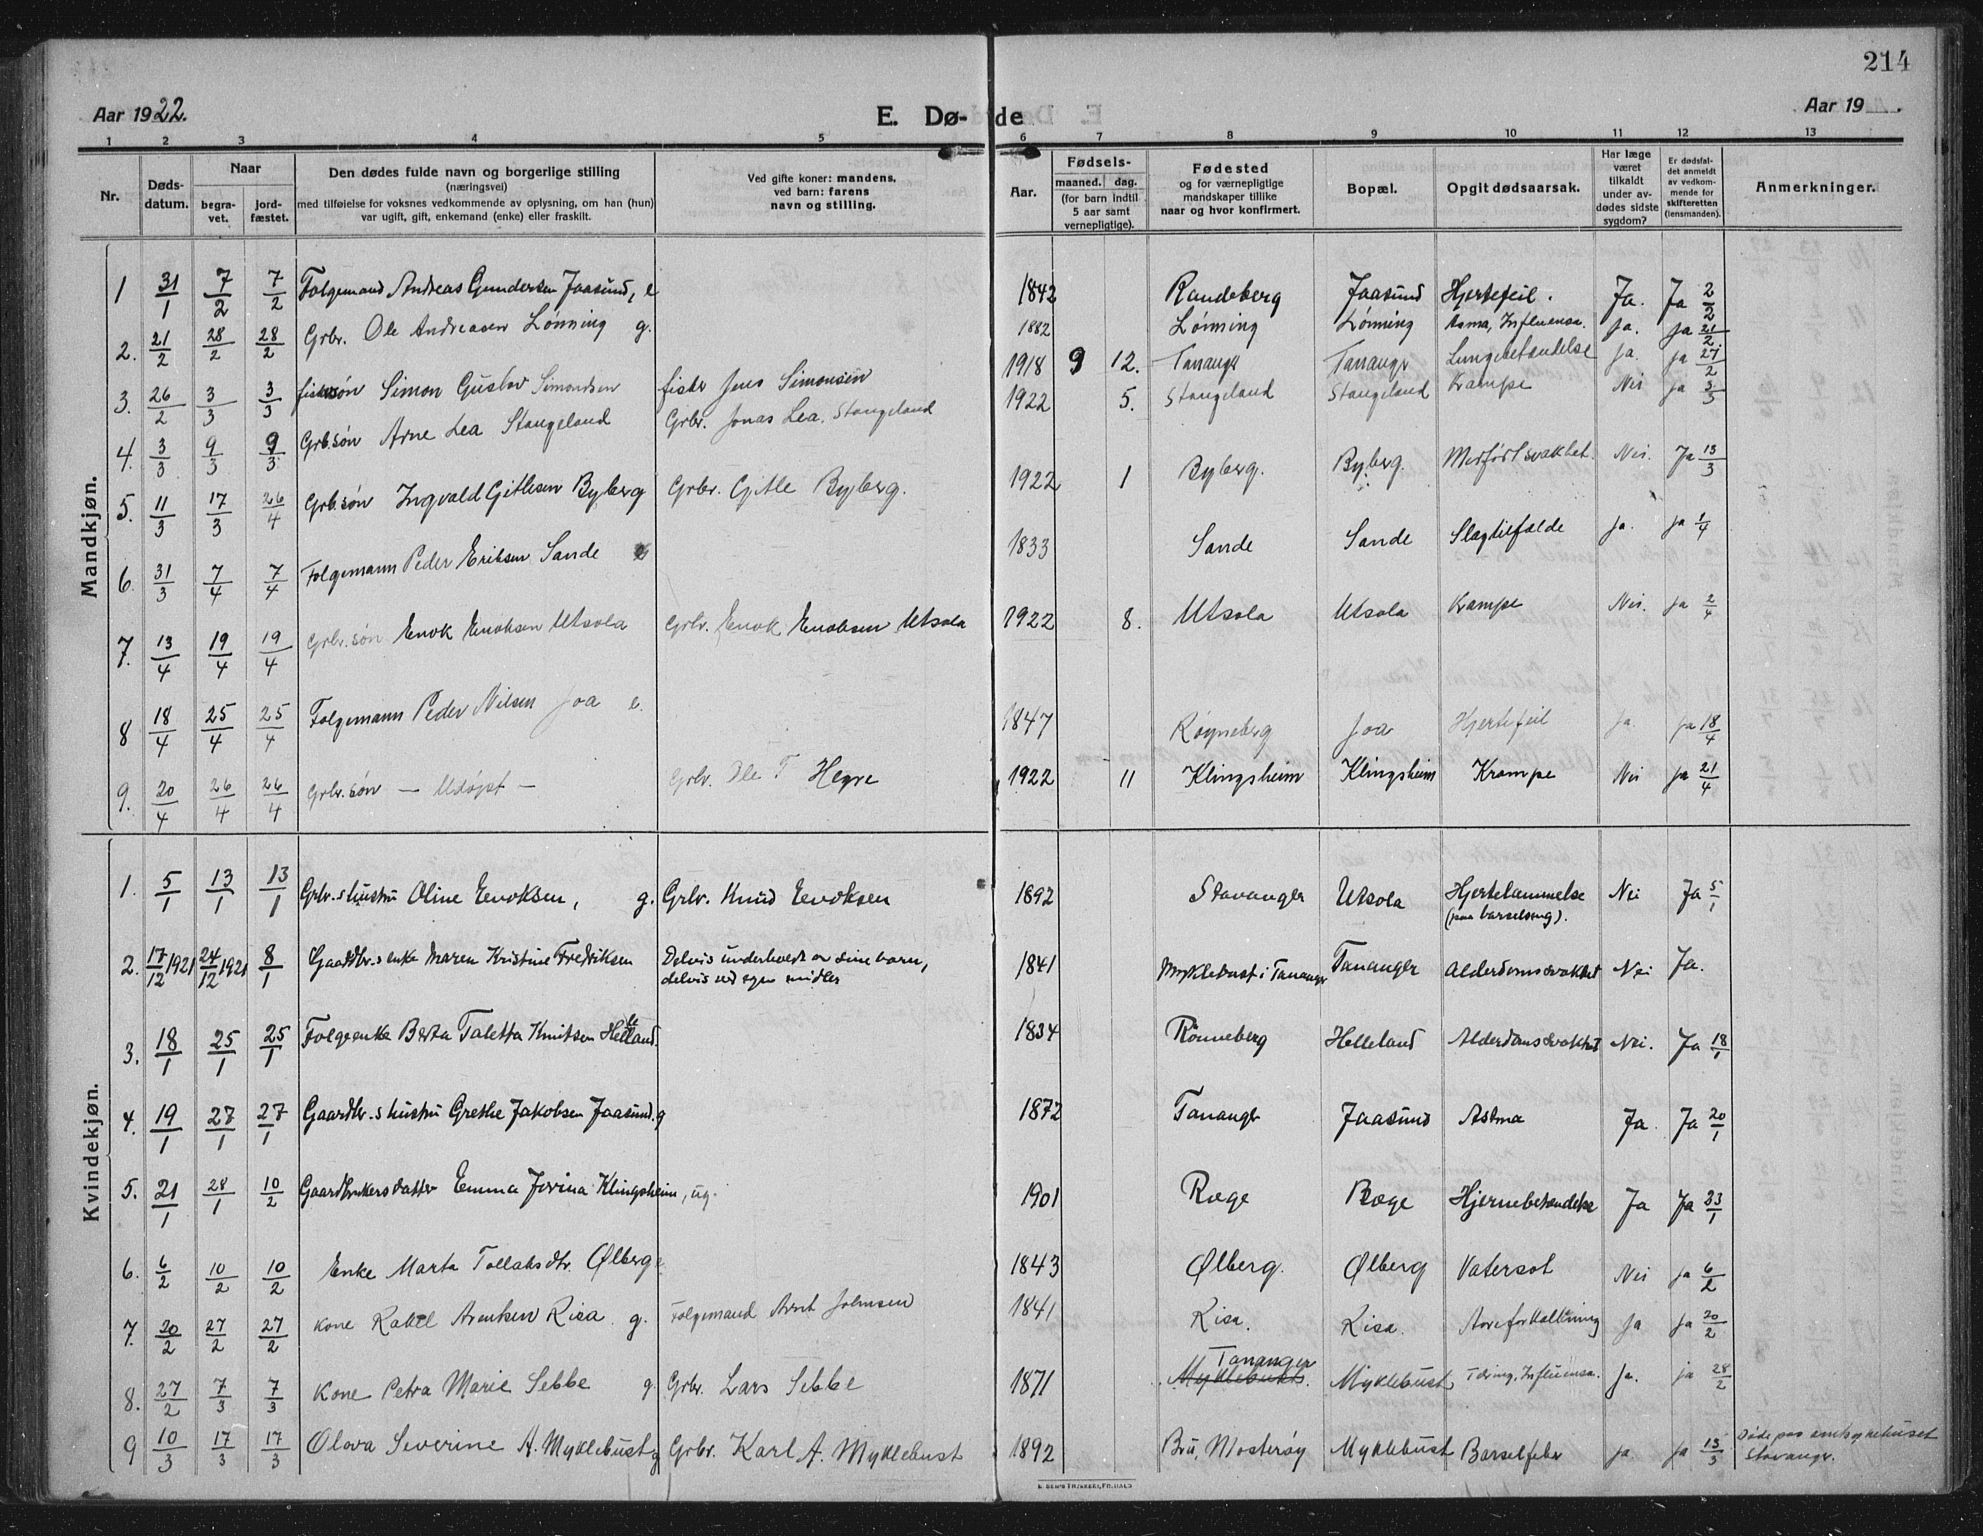 214
Aar 1922.
E. Dø- de
Aar 19 .
1 2 3 4 5 6 7 8 9 10 11 12 13
Nr.
Døds-datum.
Naar
begra-vet.
jord-fæstet.
Den dødes fulde navn og borgerlige stilling
(næringsvei)
med tilføielse for voksnes vedkommende av oplysning, om han (hun)
var ugift, gift, enkemand (enke) eller fraskilt.
Ved gifte koner: mandens,
ved barn: farens
navn og stilling.
Aar.
Fødsels-
maaned. dag.
(for barn indtil
5 aar samt
vernepligtige).
Fødested
og for værnepligtige
mandskaper tillike
naar og hvor konfirmert.
Bopæl.
Opgit dødsaarsak.
Har læge
været
tilkaldt
under av-
dødes sidste
sygdom?
Er dødsfal-
det anmeldt
av vedkom-
mende for
skifteretten
(lensmanden).
Anmerkninger.
Mandkjøn.
1 31/1 7/2 7/2 Folgemand Andreas Gundersen Jaasund, e 1842 Randeberg Jaasund Hjertefeil. Ja. Ja 2/2
2. 21/2 28/2 28/2 Grbr. Ole Andreasen Lønning g. 1882 Lønning Lønning Asma, Influensa. Ja. Ja 21/2
3. 26/2 3/3 3/3 fiskersøn Simon Gustav Simondsen fisker Jens Simonsen 1918 9 12. Tananger Tananger Lungebetændelse Ja. Ja 27/2
4. 3/3 9/3 9/3 Grb.søn Arne Lea Stangeland Grbr. Jonas Lea. Stangeland 1922 5. Stangeland Stangeland Krampe Nei Ja 3/3
5. 11/3 17/3 26/4 Grb.søn Ingvald Gitlesen Byberg Grbr. Gitle Byberg. 1922 1 Byberg. Byberg. Medfødt svakhet. Nei. Ja 13/3
6. 31/3 7/4 7/4 Folgemann Peder Eriksen Sande e 1833 Sande Sande Slagtilfælde Ja. Ja 1/4
7. 13/4 19/4 19/4 Grbr.søn Enok Enoksen Utsola Grbr. Enok Enoksen Utsola 1922 8. Utsola Utsola Krampe Nei. Ja 2/4
8 18/4 25/4 25/4 Folgemann Peder Nilsen Joa e. 1847 Røyneberg Joa Hjertefeil Ja. Ja 18/4
9. 20/4 26/4 26/4 Grbr.søn — Udøpt — Grbr. Ole T Hegre 1922 11 Klingsheim Klingsheim Krampe Nei Ja 21/4
Kvindekjøn.
1. 5/1 13/1 13/1 Grbr.s hustru Oline Enoksen, g. Grbr. Knud Enoksen 1892 Stavanger Utsola Hjertelammelse (paa barselseng). Nei Ja 5/1
2. 17/12 1921 24/12 1921 8/1 Gaardbr.s enke Maren Kristine Fredriksen Delvis underholdt av sine barn, delvis ved egne midler 1841 Myklebust i Tananger Tananger Alderdomssvakhet Nei Ja.
3. 18/1 25/1 25/1 Folgeenke Berta Taletta Knutsen Helleland. 1834 Rønneberg Helleland Alderdomssvakhet Nei. Ja 18/1
4. 19/1 27/1 27/1 Gaardbr.s hustru Grethe Jakobsen Jaasund. g 1872 Tananger Jaasund Astma Ja. Ja 20/1
5. 21/1 28/1 10/2 Gaardbrukersdatter Emma Jorina Klingsheim, ug. 1901 Rœge Rœge Hjernebetændelse Ja Ja 23/1
6. 6/2 10/2 10/2 Enke Marta Tollaksdtr. Ølberg e 1843 Ølberg. Ølberg Vatersot Nei Ja 6/2
7. 20/2 27/2 27/2 Kone Rakel Arentsen Risa. g. Folgemand Arnt Johnsen 1841 Risa. Risa. Aareforkalkning Ja Ja 20/2
8. 27/2 7/3 7/3 Kone Petra Marie Sebbe g Grbr. Lars Sebbe 1871 Tananger Myklebust. Myklebust Tæring, Influensa. Ja. Ja 28/2
9 10/3 17/3 17/3 Olava Severine A. Myklebust g Grbr. Karl A. Myklebust 1892 Bru, Mosterøy Myklebust Barselfeber Ja Ja 13/3 Døde paa amtsykehuset Stavanger.